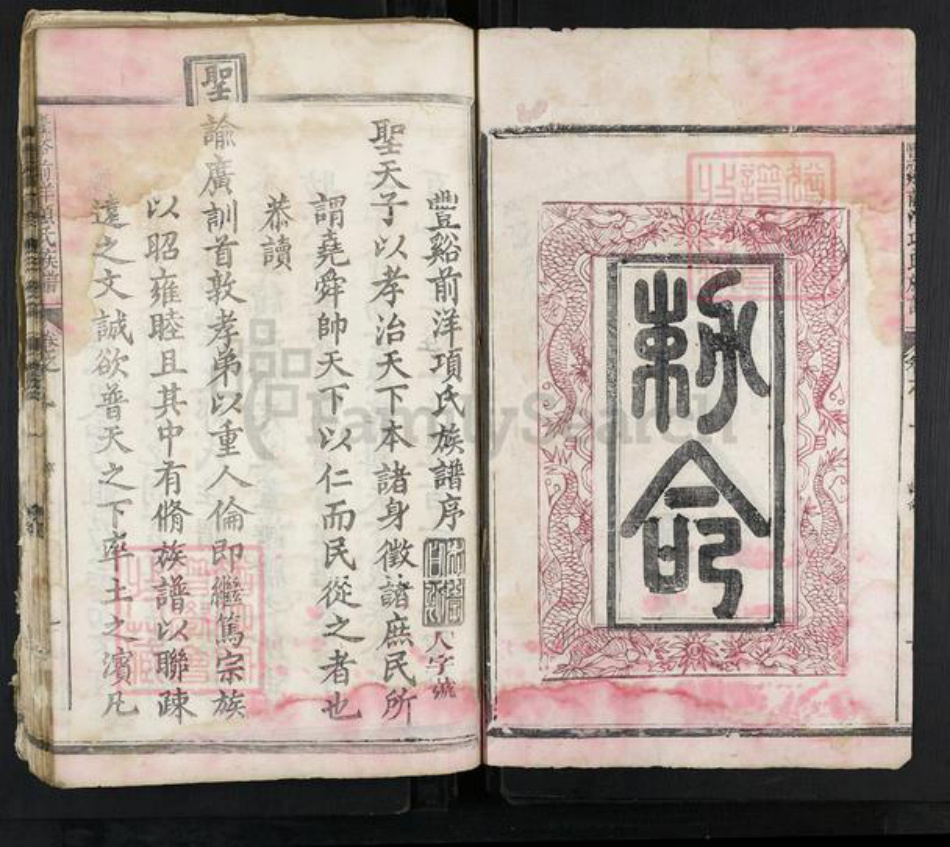 敕命
豐谿前洋項氏族譜序
人字號
聖天子以孝治天下本諸身徵諸庶民所
謂堯舜帥天下以仁而民從之者也
恭讀
聖諭廣訓首敦孝弟以重人倫即繼篤宗族
以昭雍睦且其中有脩族譜以聯疎
遠之文誠欲普天之下率土之濱凡
FamilySearch